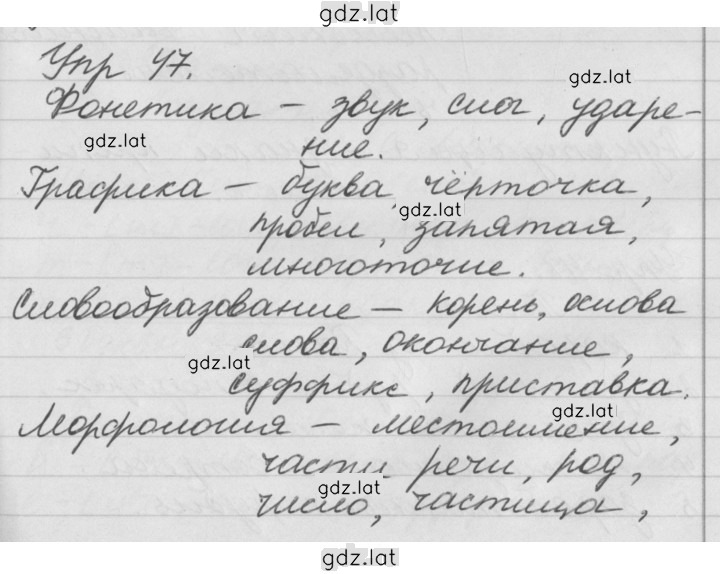 gdz.lat
Упр 47.
gdz.lat
Фонетика – звук, слог, ударе-
gdz.lat
ние.
Графика – буква, чёрточка,
gdz.lat
пробел, запятая,
многоточие.
Словообразование – корень, основа
слова, окончание,
gdz.lat
суффикс, приставка.
gdz.lat
Морфология – местоимение,
части речи, род,
gdz.lat
число, частица,
gdz.lat